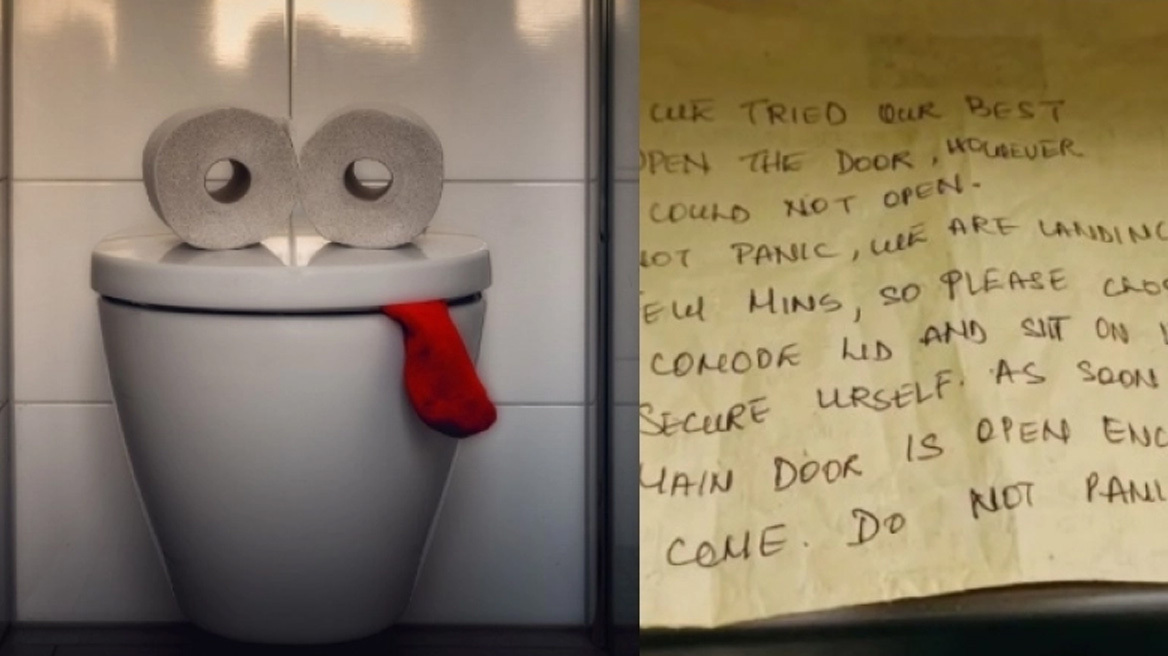 WE TRIED OUR BEST
OPEN THE DOOR, HOWEVER
COULD NOT OPEN.
NOT PANIC, WE ARE LANDING
FEW MINS, SO PLEASE CLOS
COMODE LID AND SIT ON
SECURE URSELF. AS SOON
MAIN DOOR IS OPEN ENG
COME. DO NOT PANI